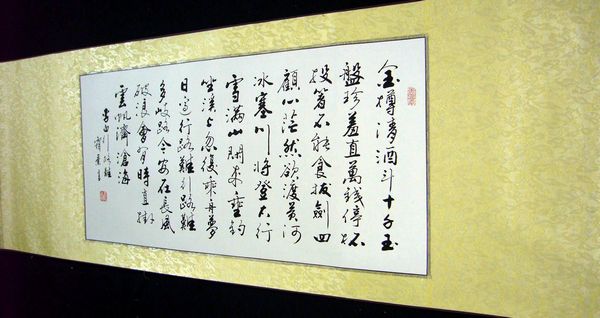 金樽清酒斗十千玉
盤珍羞直萬錢停杯
投箸不能食拔劍四
顧心茫然欲渡黃河
冰塞川將登太行
雪滿山閒來垂釣
坐溪上忽復乘舟夢
日邊行路難行路難
多岐路今安在長風
破浪會有時直掛
雲帆濟滄海
李白行路難